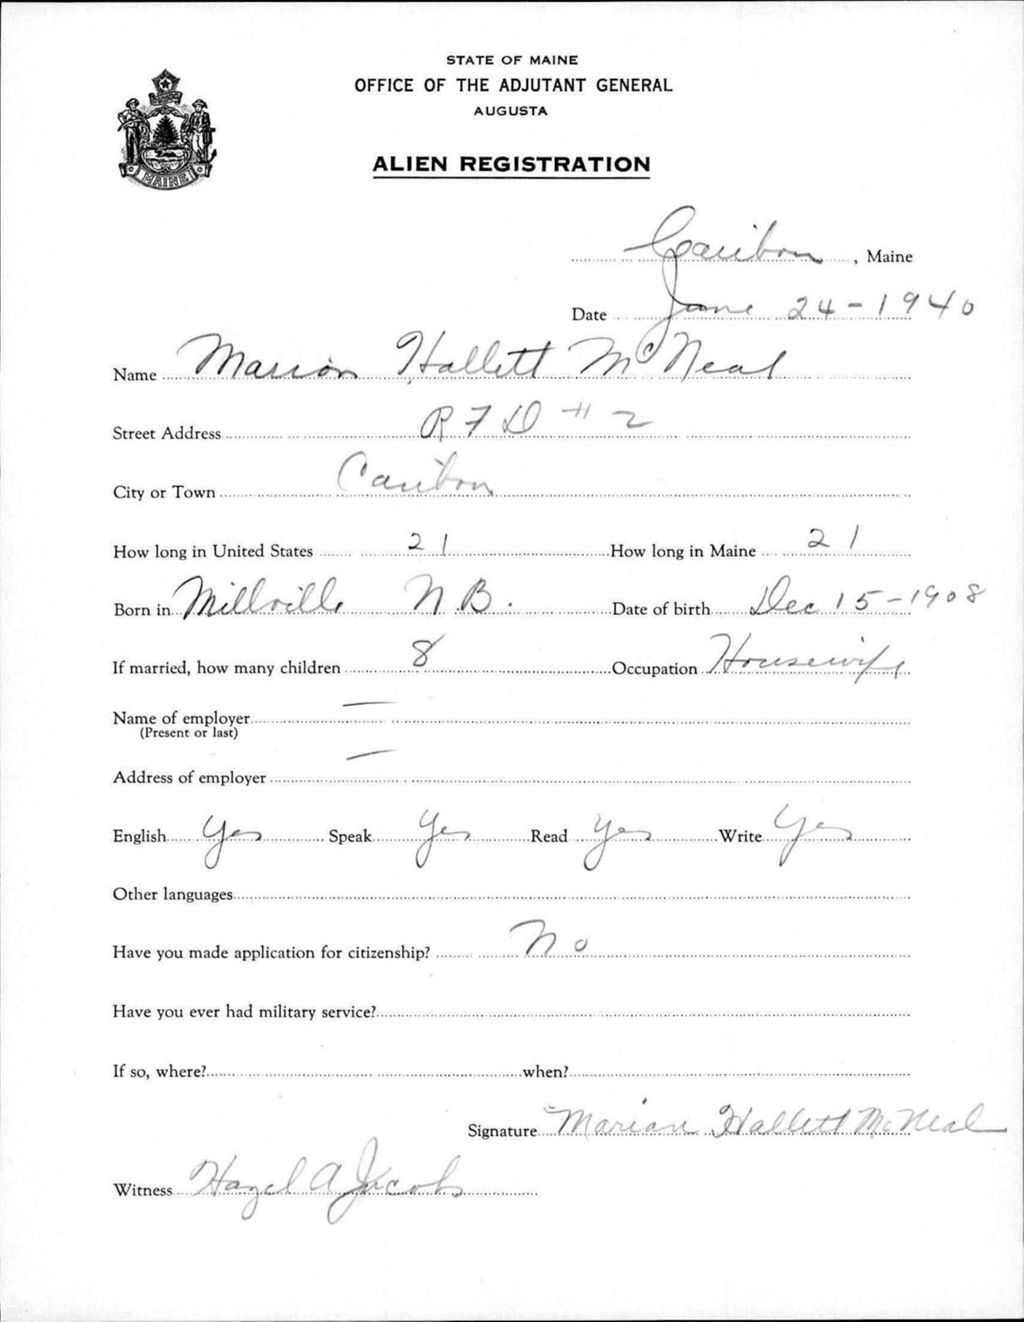 STATE OF MAINE
OFFICE OF THE ADJUTANT GENERAL
AUGUSTA
MAINE
ALIEN REGISTRATION
Caribou, Maine
Date June 24-1940
Name Marion Hallett McNeal
Street Address R F D # 2
City or Town Caribou
How long in United States 21 How long in Maine 21
Born in Millville N.B. Date of birth Dec 15-1908
If married, how many children 8 Occupation Housewife
Name of employer —
(Present or last)
Address of employer —
English Yes Speak Yes Read Yes Write Yes
Other languages
Have you made application for citizenship? No
Have you ever had military service?
If so, where? when?
Signature Marion Hallett McNeal
Witness Hazel A Jacobs